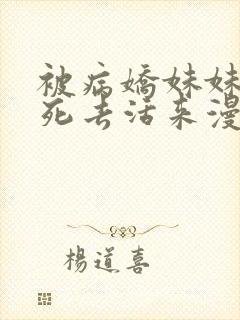 被病嬌妹妹
死去活來漫
楊道喜